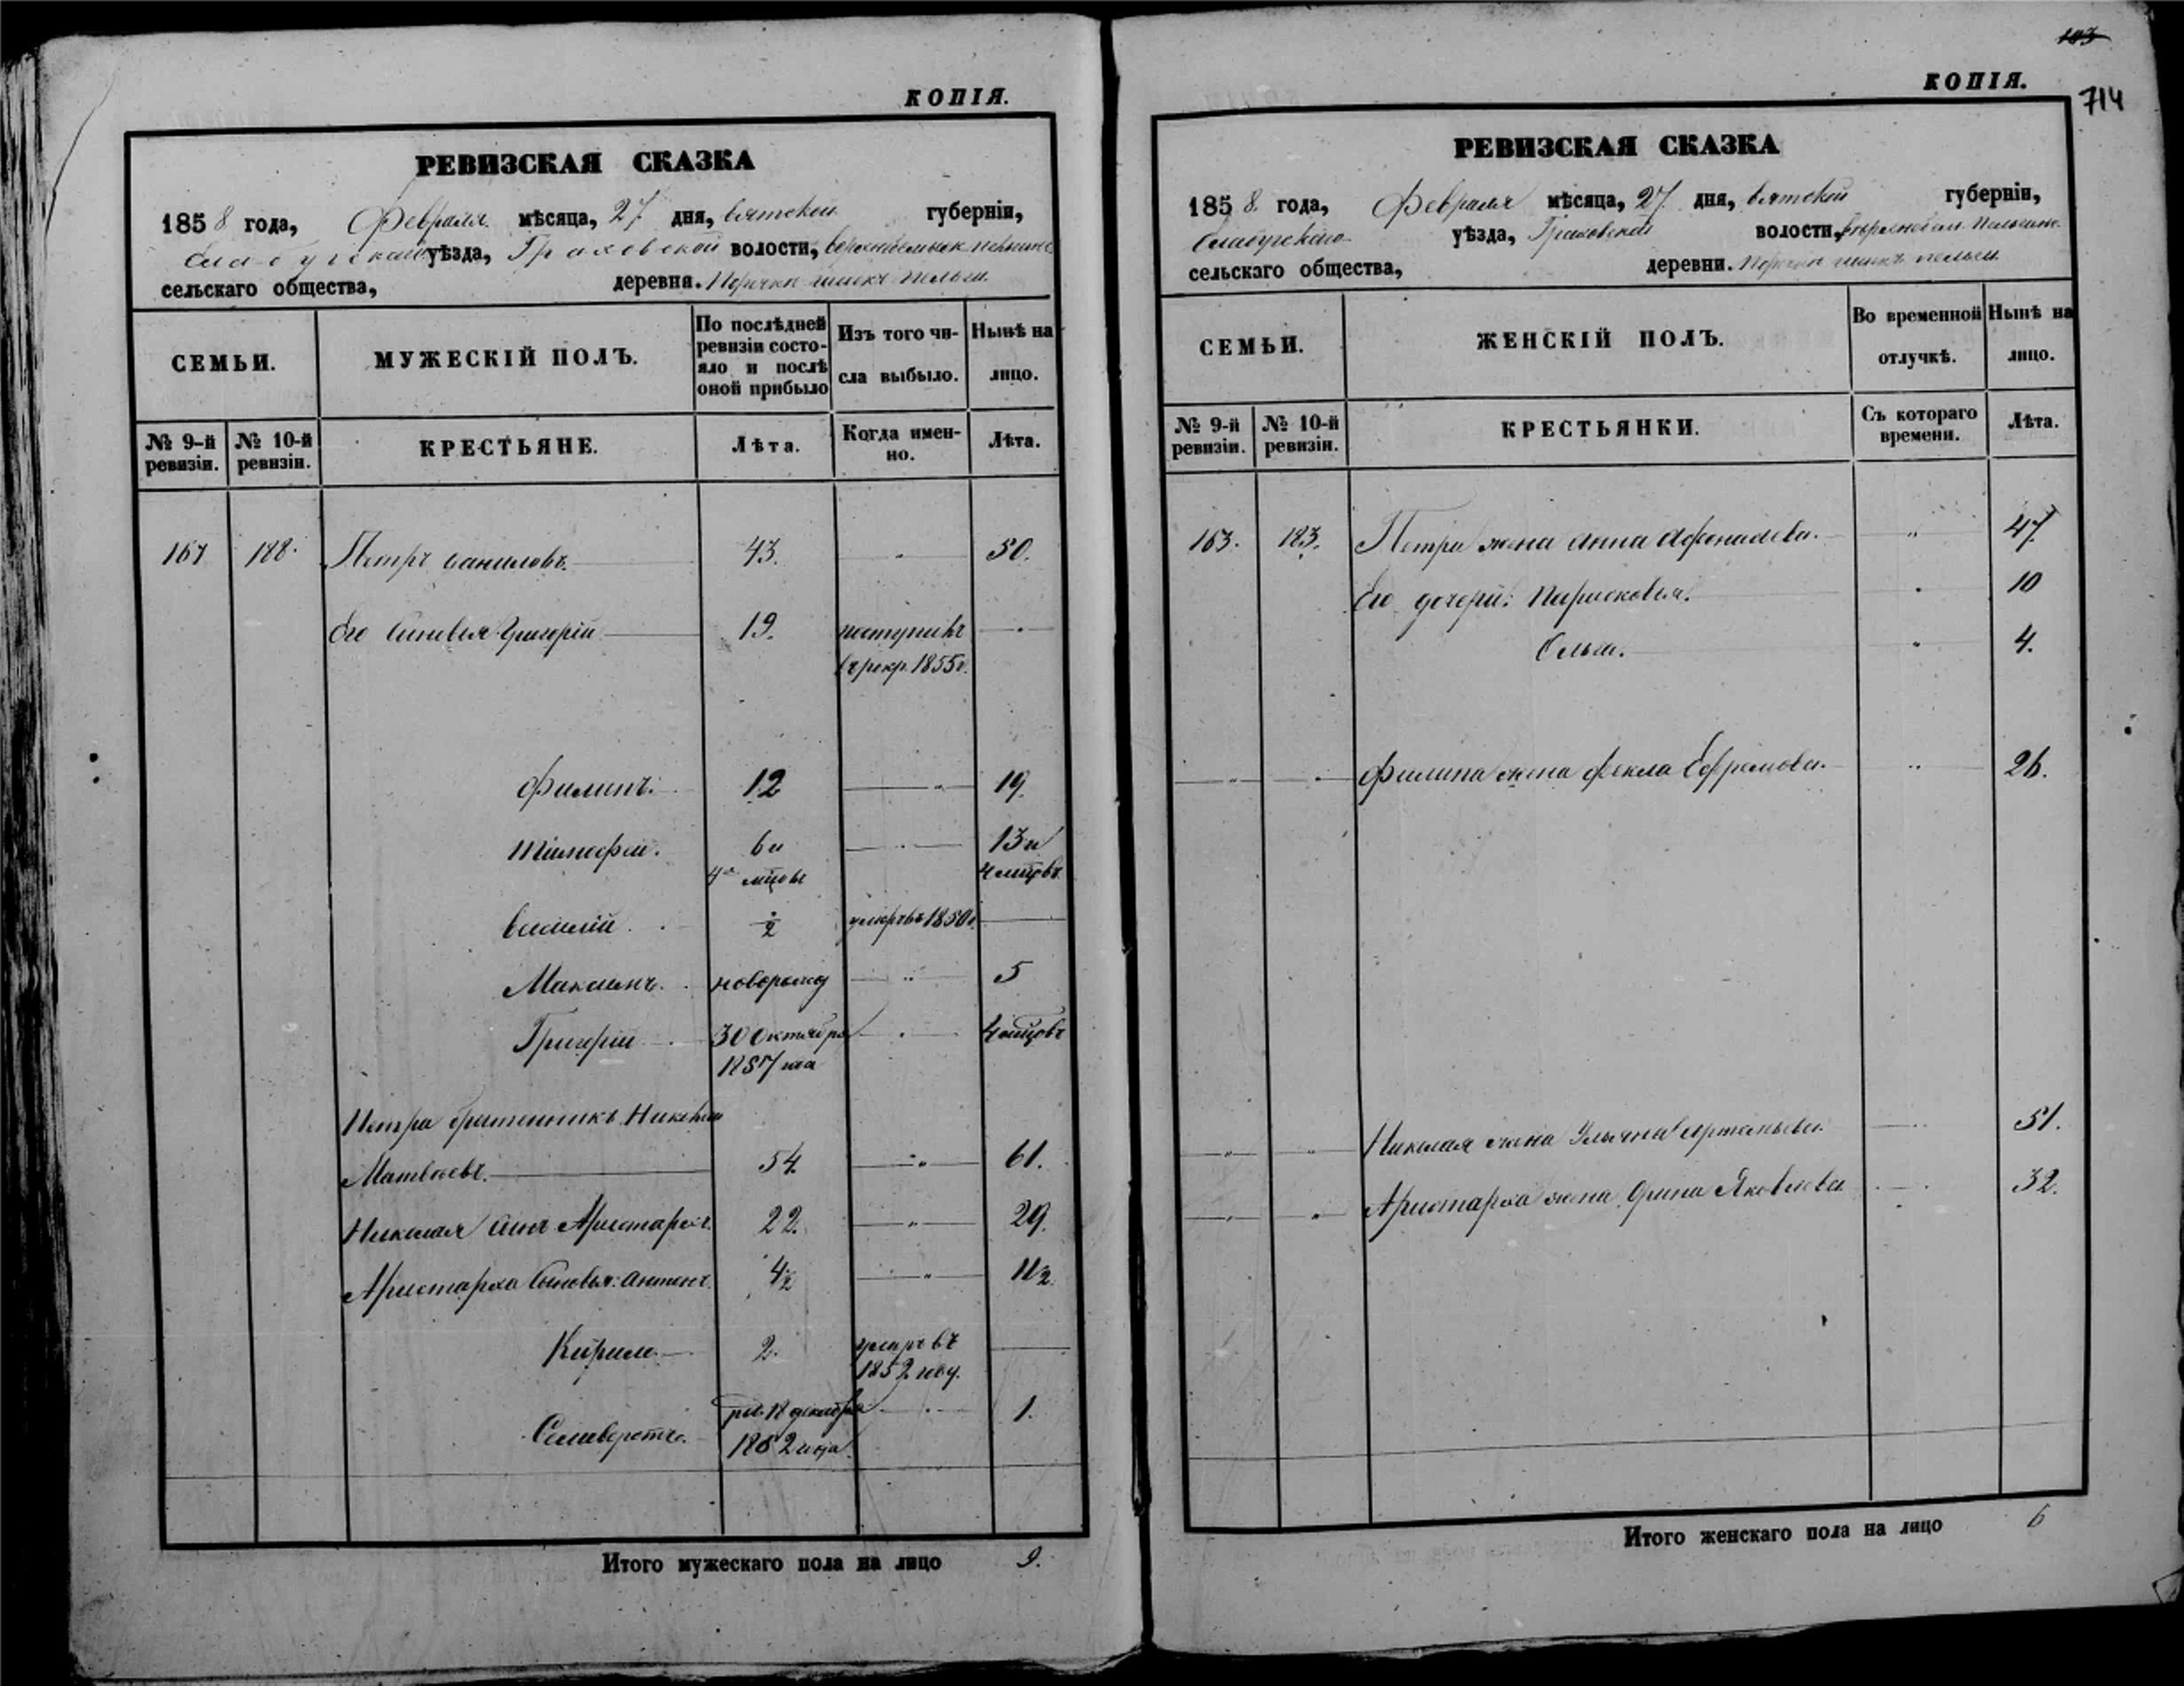 КОПІЯ.
РЕВИЗСКАЯ СКАЗКА
1858 года, Февраля мѣсяца, 27 дня, Вятской губерніи,
уѣзда, Граховской волости,
сельскаго общества, деревни.
СЕМЬИ.
МУЖЕСКІЙ ПОЛЪ.
По послѣдней ревизіи состояло и послѣ оной прибыло
Изъ того числа выбыло.
Нынѣ на лицо.
№ 9-й ревизіи.
№ 10-й ревизіи.
КРЕСТЬЯНЕ.
Лѣта.
Когда именно.
Лѣта.
188. Петръ Даниловъ. 43. " 50.
Его Сыновья Григорій 19. поступилъ
въ рекр. 1855 г.
Филипъ. 12 " 19.
Тимофей. 6 и 13 и
4 мцовъ
Василій ½ умеръ въ 1850 г.
Максимъ. новорожд " 5
Григорій 30 Октября 4 мцовъ
1857 года
Петра братенникъ Николай
Матвѣевъ. 54. " 61.
Николая сынъ Аристархъ. 22. " 29.
Аристарха Сыновья: Антонъ. 4½ " 11½
Кирилъ 2. умеръ въ
1852 году.
Селиверстъ. 1.
Итого мужескаго пола на лицо 9.
103
714
КОПІЯ.
РЕВИЗСКАЯ СКАЗКА
1858. года, Февраля мѣсяца, 27 дня, Вятской губерніи,
Елабугскаго уѣзда, Граховской волости,
сельскаго общества, деревни.
СЕМЬИ.
ЖЕНСКІЙ ПОЛЪ.
Во временной отлучкѣ.
Нынѣ на лицо.
№ 9-й ревизіи.
№ 10-й ревизіи.
КРЕСТЬЯНКИ.
Съ котораго времени.
Лѣта.
163. 183. Петра жена Анна Афонасьева. " 47
Его дочери: Парасковья. " 10
Ольга. " 4.
" " Филипа жена Фекла Ефремова. " 26.
" " Николая жена Ульяна Артемьева. " 51.
" " Аристарха жена Орина Яковлева 32.
Итого женскаго пола на лицо 6